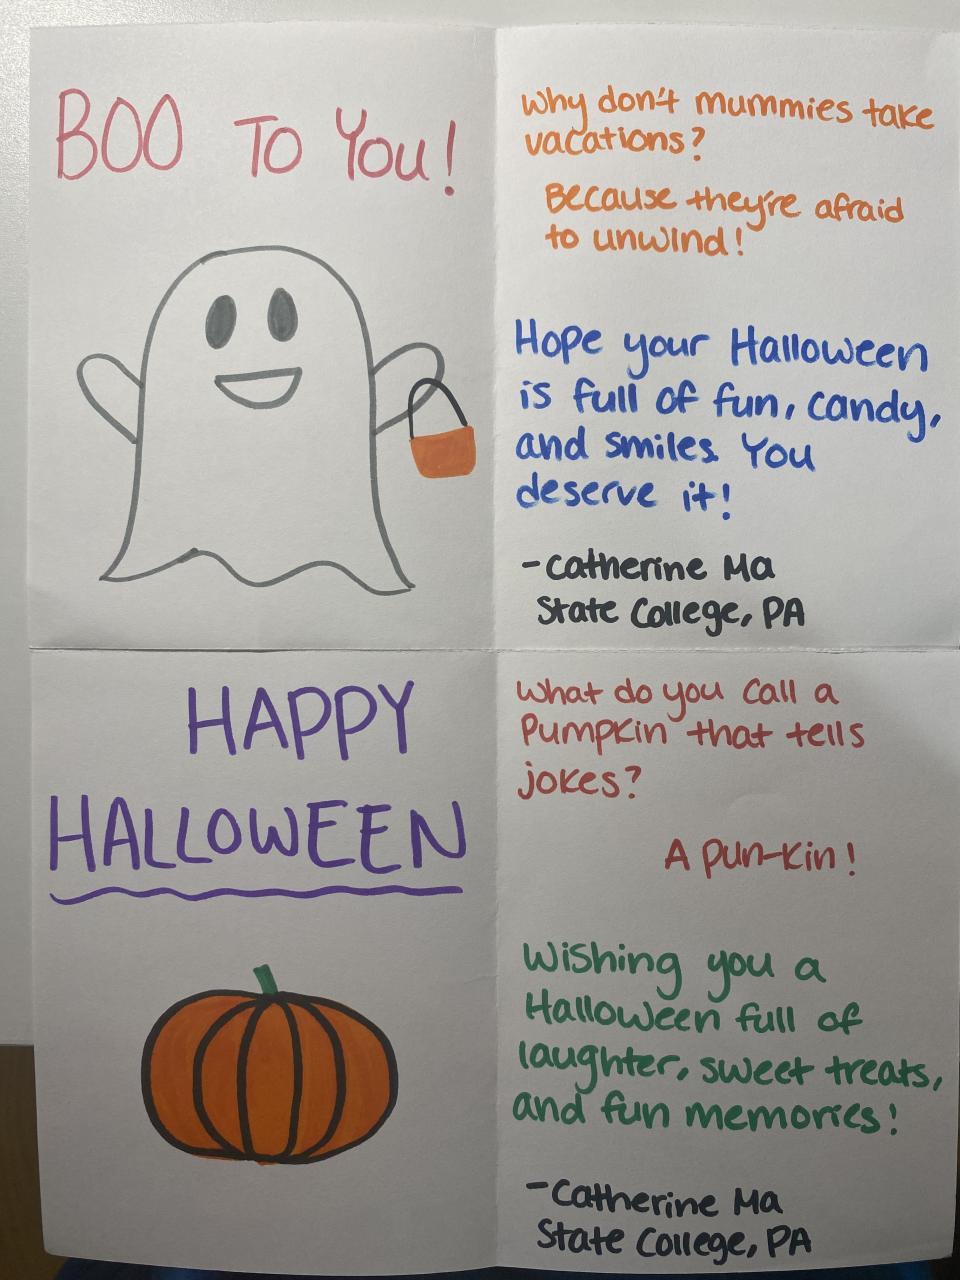 BOO To You!
Why don't mummies take
vacations?
Because they're afraid
to unwind!
Hope your Halloween
is full of fun, candy,
and smiles. You
deserve it!
-Catherine Ma
State College, PA
HAPPY
HALLOWEEN
What do you call a
Pumpkin that tells
jokes?
A Pun-kin!
Wishing you a
Halloween full of
laughter, sweet treats,
and fun memories!
-Catherine Ma
State College, PA